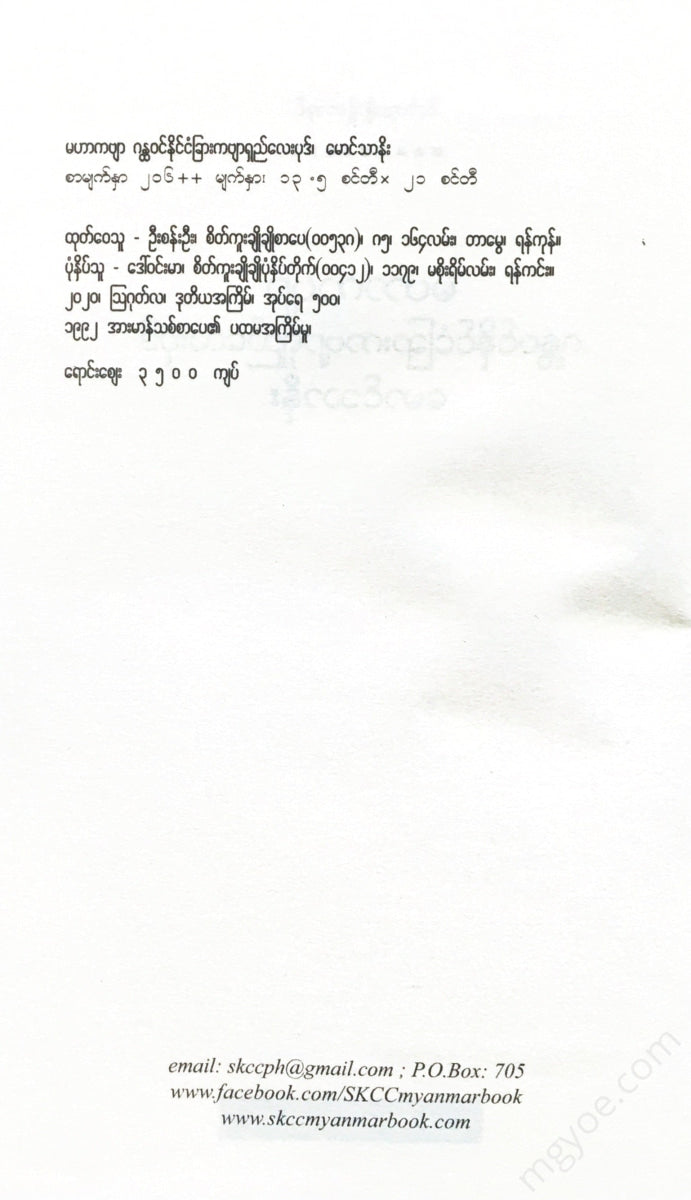 မဟာကဗျာ ဂန္ထဝင်နိုင်ငံခြားကဗျာရှည်လေးပုဒ်၊ မောင်သာနိုး
စာမျက်နှာ ၂၁၆++ မျက်နှာ၊ ၁၃.၅ စင်တီ× ၂၁ စင်တီ
ထုတ်ဝေသူ - ဦးစန်းဦး၊ စိတ်ကူးချိုချိုစာပေ(၀၀၅၃၈)၊ ဂ၅၊ ၁၆၄လမ်း၊ တာမွေ၊ ရန်ကုန်။
ပုံနှိပ်သူ - ဒေါ်ဝင်းမာ၊ စိတ်ကူးချိုချိုပုံနှိပ်တိုက်(၀၀၄၁၂)၊ ၁၁၇၉၊ မစိုးရိမ်လမ်း၊ ရန်ကင်း။
၂၀၂၀၊ ဩဂုတ်လ၊ ဒုတိယအကြိမ်၊ အုပ်ရေ ၅၀၀၊
၁၉၉၂ အားမာန်သစ်စာပေ၏ ပထမအကြိမ်မူ၊
ရောင်းဈေး ၃၅၀၀ ကျပ်
email: skccph@gmail.com ; P.O.Box: 705
www.facebook.com/SKCCmyanmarbook
www.skccmyanmarbook.com
mgyoe.com